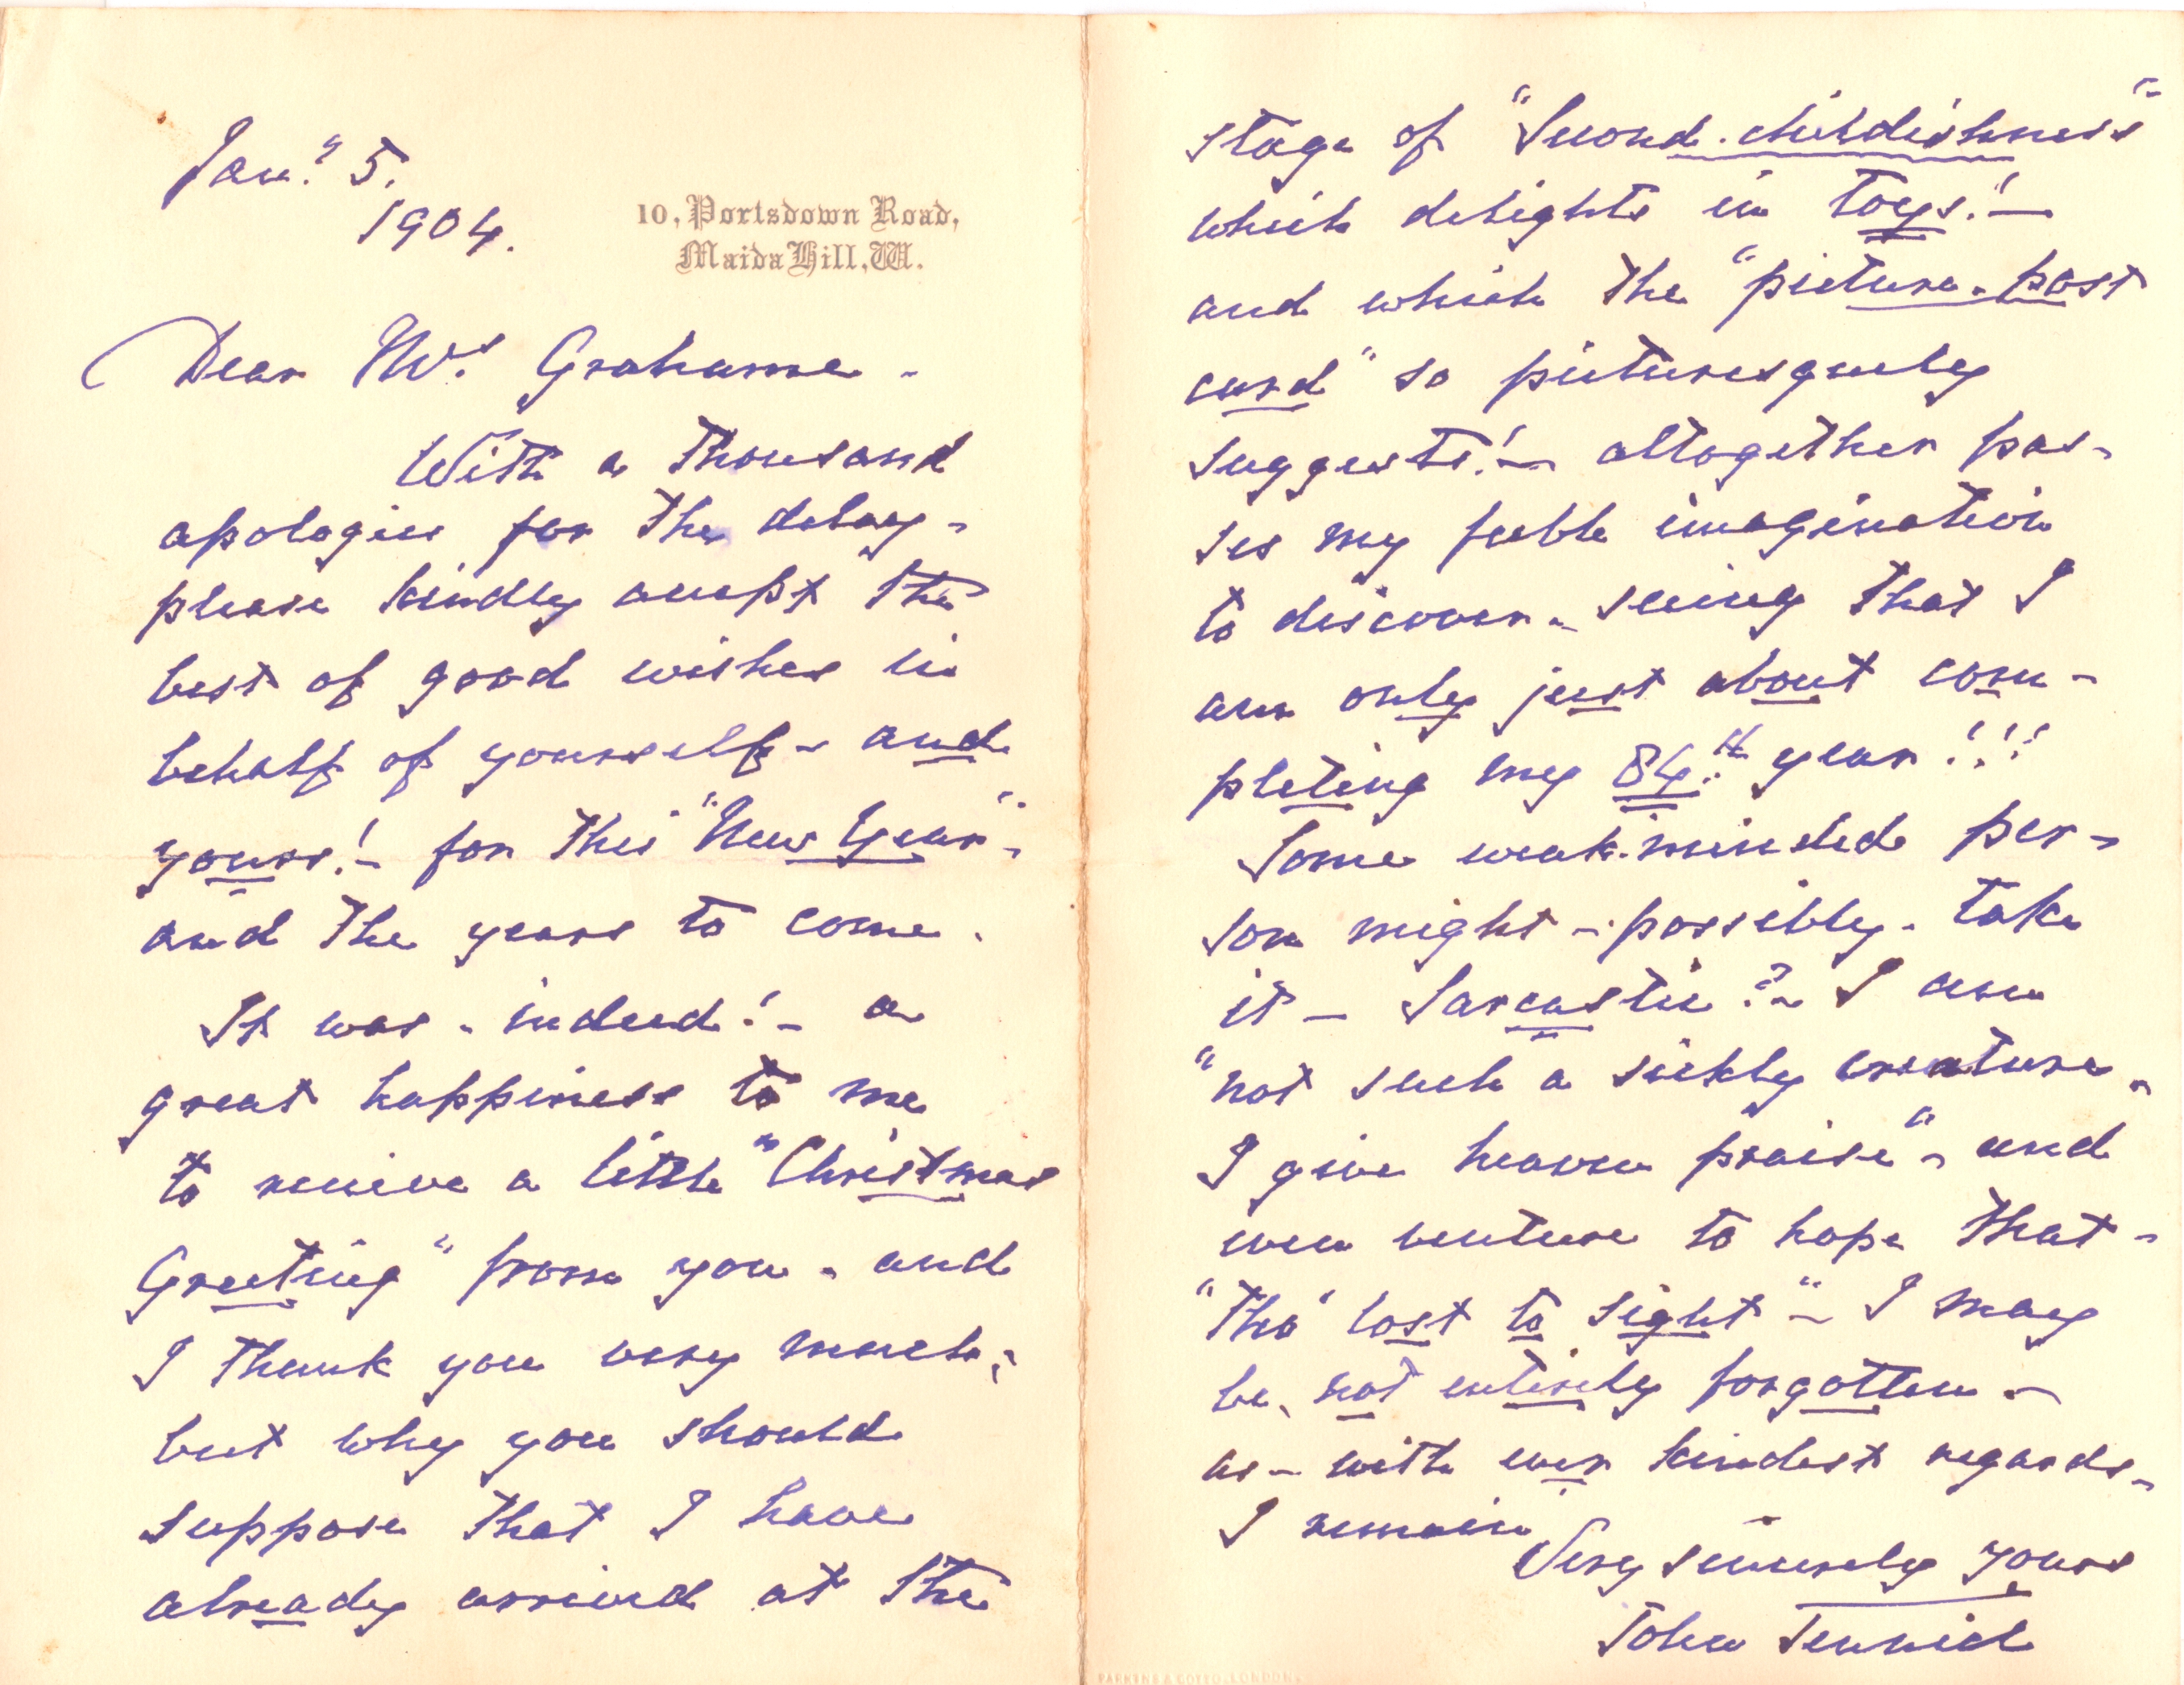 Jany 5.
1904.
10, Portsdown Road,
Maida Hill, W.
Dear Mrs Grahame -
With a thousand
apologies for the delay -
please kindly accept the
best of good wishes in
behalf of yourself - and
yours! - for this "New Year" -
and the years to come.
It was - indeed! - a
great happiness to me
to receive a little "Christmas
Greeting" from you - and
I thank you very much;
but why you should
suppose that I have
already arrived at the
stage of "Second-childishness"
which delights in toys! -
and which the "picture-post
card" so picturesquely
suggests! - altogether pas-
ses my feeble imagination
to discover - seeing that I
am only just about com-
pleting my 84th year!!!
Some weak-minded per-
son might - possibly - take
it - Sarcastic? - I am
"not such a sickly creature -
I give heaven praise" - and
even venture to hope that -
"tho' lost to sight" - I may
be, not entirely forgotten -
as - with ever kindest regards -
I remain
Very sincerely yours
John Tenniel
PARKINS & GOTTO. LONDON.